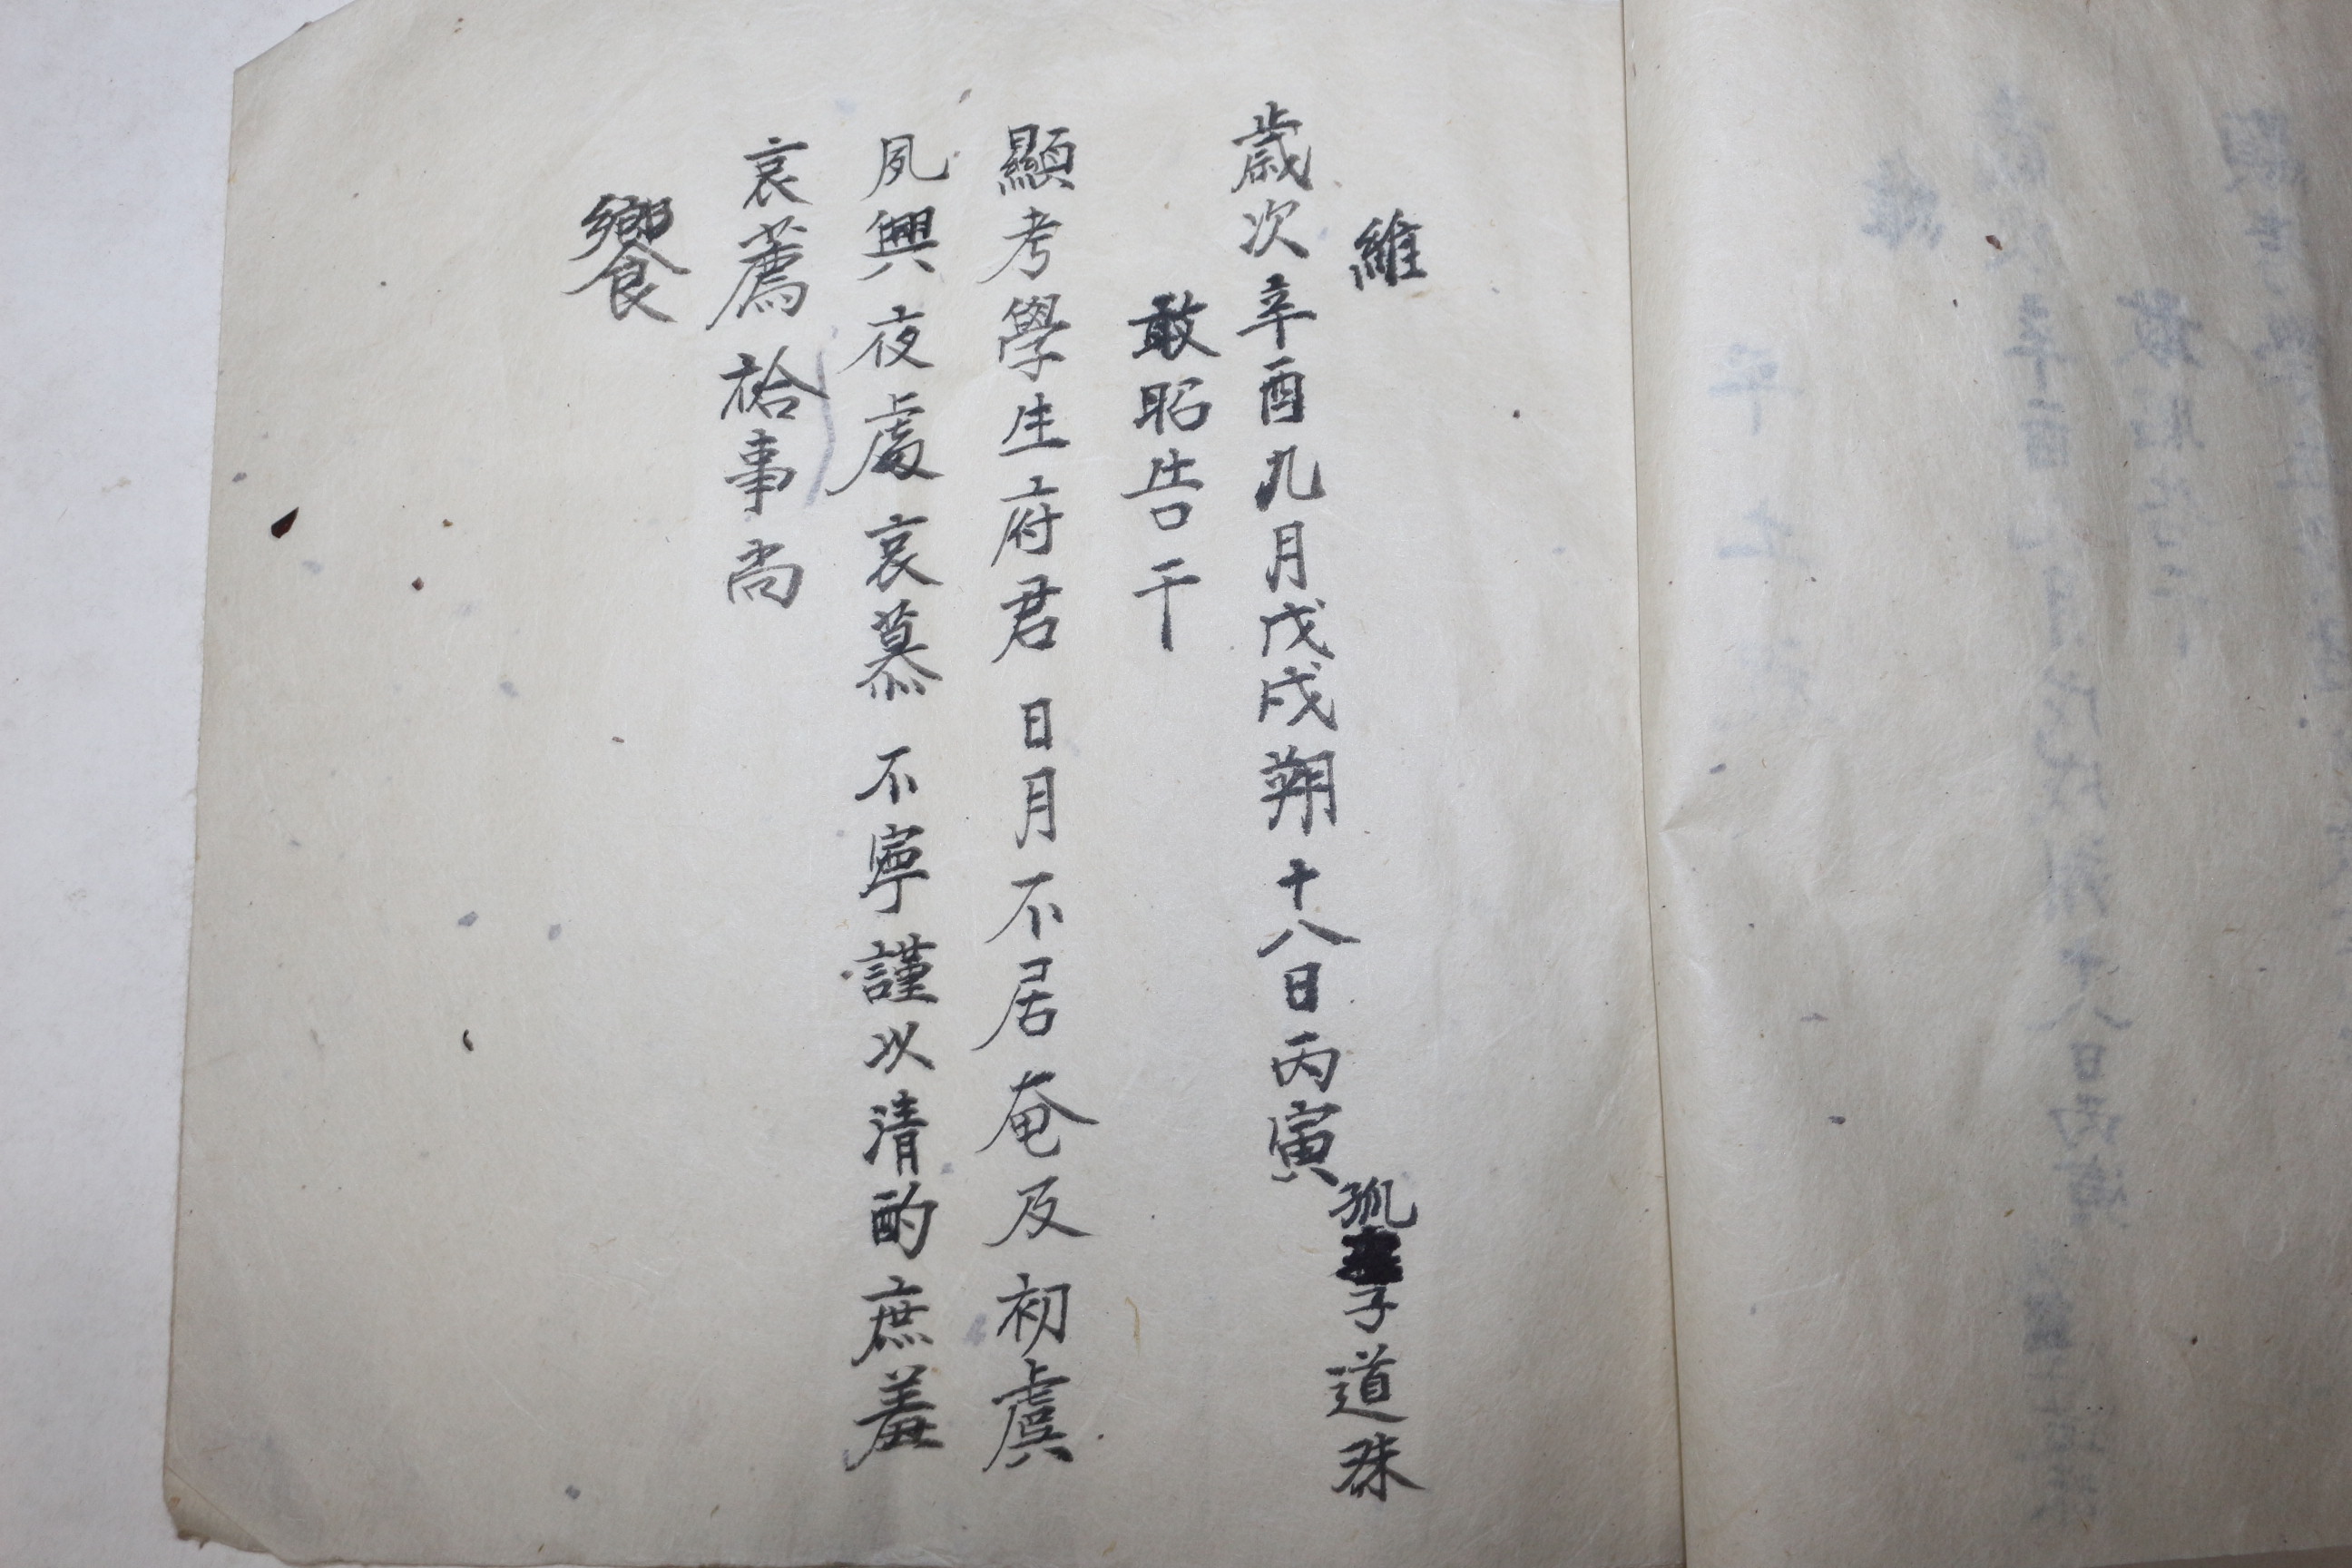 維
歲次辛酉九月戊戌朔十八日丙寅孤子道珠
敢昭告于
顯考學生府君日月不居奄及初虞
夙興夜處哀慕不寧謹以淸酌庶羞
哀薦祫事尙
饗